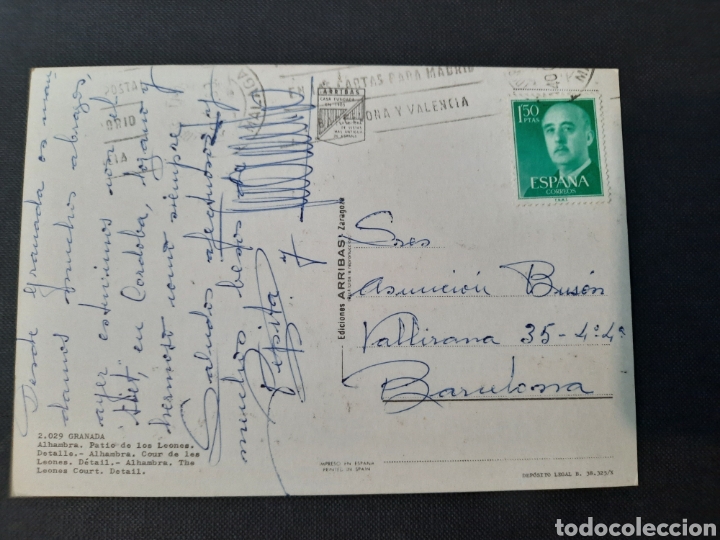 Desde Granada os man
damos muchos abrazos,
ayer estuvimos con el
en Cordoba, lejano y
hermoso como siempre
Saludos afectuosos y
muchos besos de
Pepita y
CARTAS PARA MADRID
BARCELONA Y VALENCIA
MALAGA
ARRIBAS
1,50
PTAS
ESPAÑA
CORREOS
Sres
Asunción Busón
Vallirana 35-4º-4ª
Barcelona
Ediciones ARRIBAS Zaragoza
2.029 GRANADA
Alhambra. Patio de los Leones.
Detalle.- Alhambra. Cour de les
Leones. Détail.- Alhambra. The
Leones Court. Detail.
IMPRESO EN ESPAÑA
PRINTED IN SPAIN
DEPÓSITO LEGAL B. 38.323/5
todocoleccion